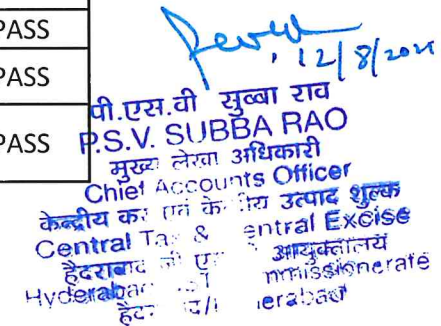 PASS
PASS
PASS
12/8/2021
पी.एस.वी सुब्बा राव
P.S.V. SUBBA RAO
मुख्य लेखा अधिकारी
Chief Accounts Officer
केन्द्रीय कर एवं के ीय उत्पाद शुल्क
Central Ta & entral Excise
हैदराबाद आयुक्तालय
Hyderaba mmissionerate
हैद erabad